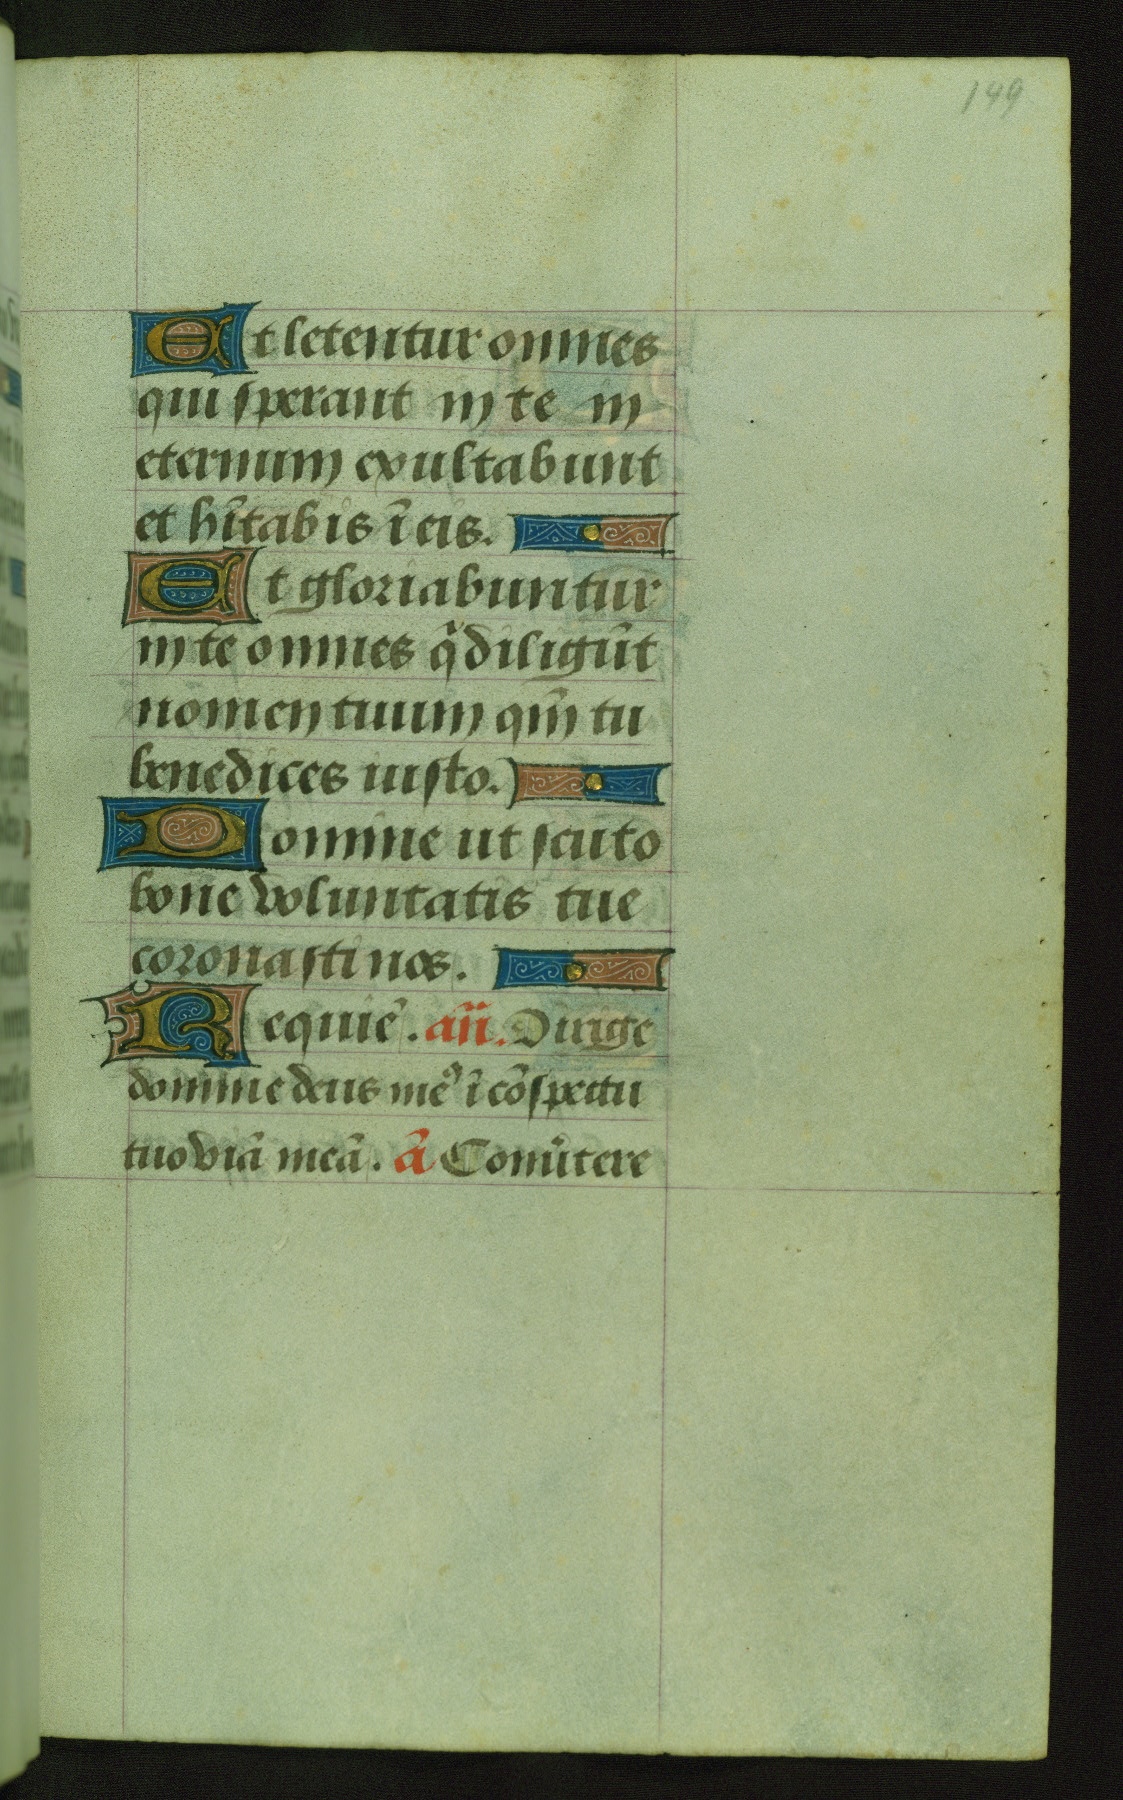 199
Et letentur omnes
qui sperant in te in
eternum exultabunt
et hītabis ī eis.
Et gloriabuntur
in te omnes q̄ diligūt
nomen tuum qm̄ tu
benedices iusto.
Domine ut scuto
bone voluntatis tue
coronasti nos.
Requiē. añ. Dirige
domine deus me⁹ ī cōspectu
tuo viā meā. ā Conūtere